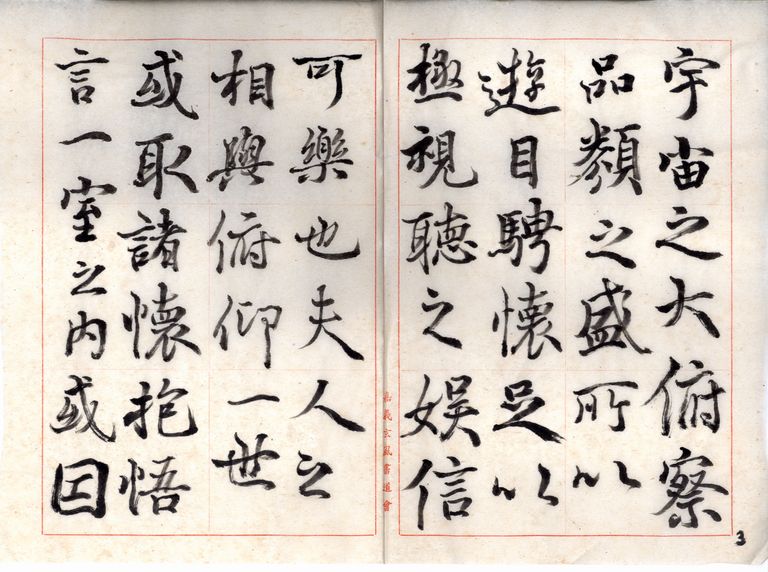 宇宙之大俯察
品類之盛所以
遊目騁懷足以
極視聽之娛信
可樂也夫人之
相與俯仰一世
或取諸懷抱悟
言一室之內或因
嘉義玄風書道會
3